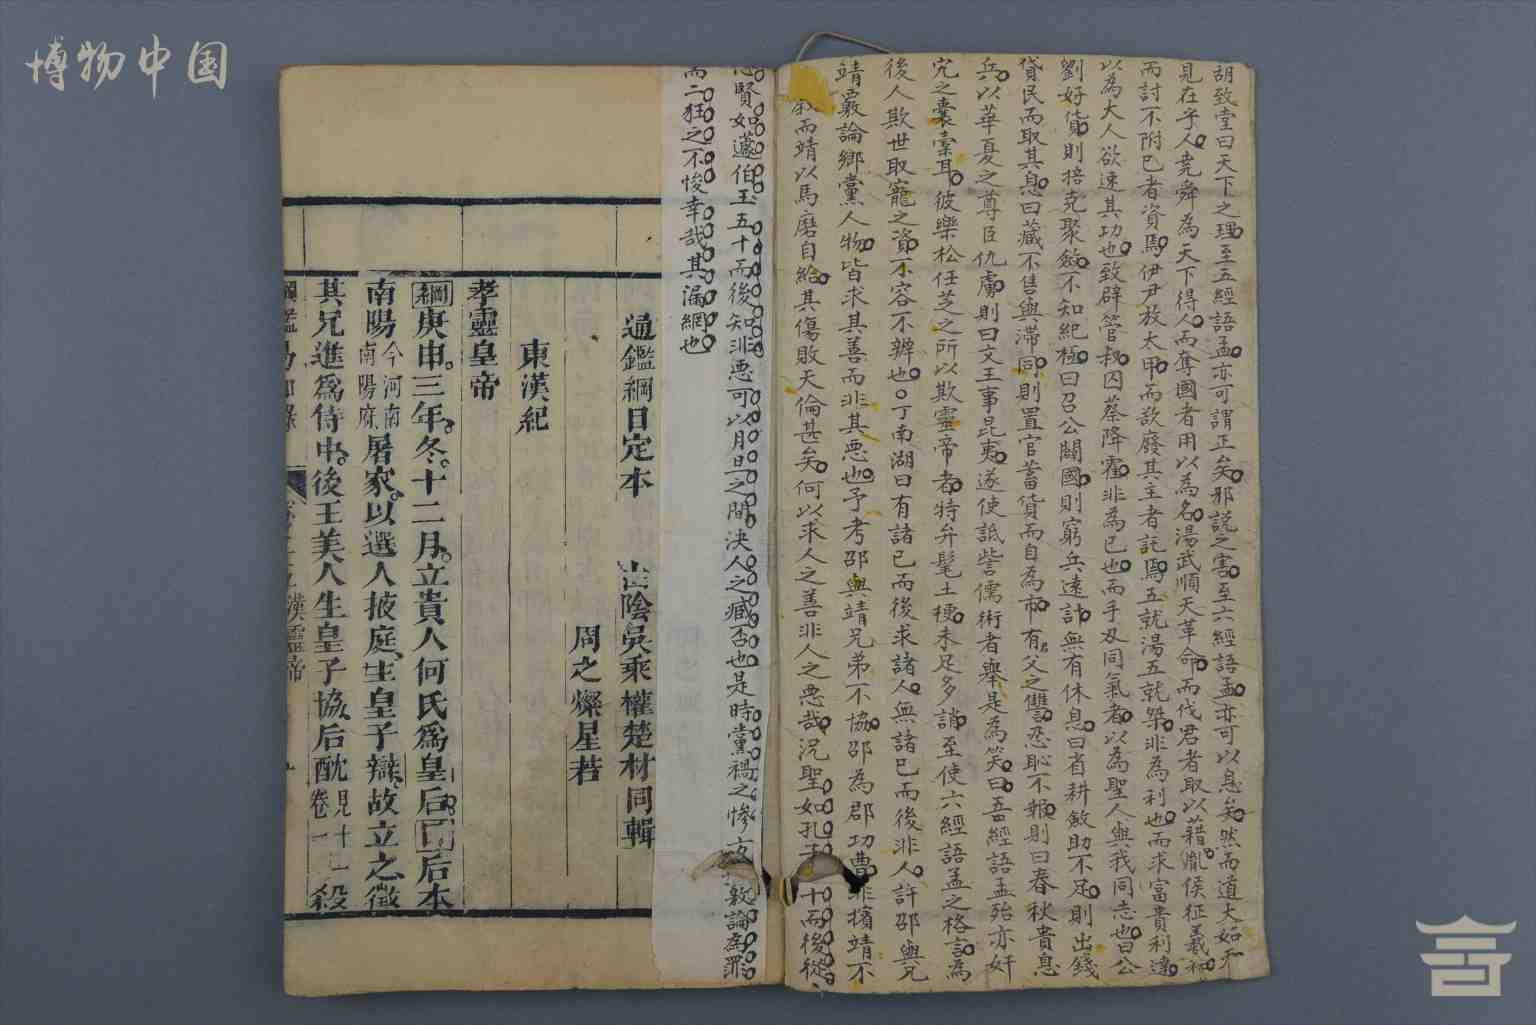 博物中国
胡致堂曰天下之理至五經語孟亦可謂正矣邪説之害至六經語孟亦可以息矣然而道大如天
見在乎人堯舜為天下得人而奪國者用以為名湯武順天革命而伐君者取以藉胤侯征羲和
而討不附已者資焉伊尹放太甲而欲廢其主者託焉五就湯五就桀非為利也而求富貴利達
以為大人欲速其功也致辟管叔囚蔡降霍非為已也而手刃同氣者以為聖人與我同志也曰公
劉好貨則掊克聚斂不知紀極曰召公闢國則窮兵遠討無有休息曰省耕斂助不足則出錢
貸民而取其息曰藏不售與滯同則置官蓄貨而自為市有父之讐忍恥不報則曰春秋貴息
兵以華夏之尊臣仇虜則曰文王事昆夷遂使詆訾儒術者舉是為笑曰五經語孟殆亦奸
宄之囊橐耳彼樂松任芝之所以欺靈帝者特弁髦土梗未足多誚至使六經語孟之格言為
後人欺世取寵之資不容不辨也丁南湖曰有諸已而後求諸人無諸已而後非人許邵與兄
靖覈論鄉黨人物皆求其善而非其惡也予考邵與靖兄弟不協邵為郡功曹非擯靖不
叙而靖以馬磨自給其傷敗天倫甚矣何以求人之善非人之惡哉況聖如孔子十而後從
賢如蘧伯玉五十而後知非惡可以月旦之間決人之臧否也是時黨禍之慘 覈論為罪
而二狂之不悛幸哉其漏網也
通鑑綱目定本 山陰吳乘權楚材同輯
周之燦星若
東漢紀
孝靈皇帝
綱庚申三年冬十二月立貴人何氏爲皇后 后本
南陽今河南南陽府屠家以選入掖庭生皇子辯故立之徵
其兄進爲侍中後王美人生皇子協后酖見十七卷一殺
漢靈帝